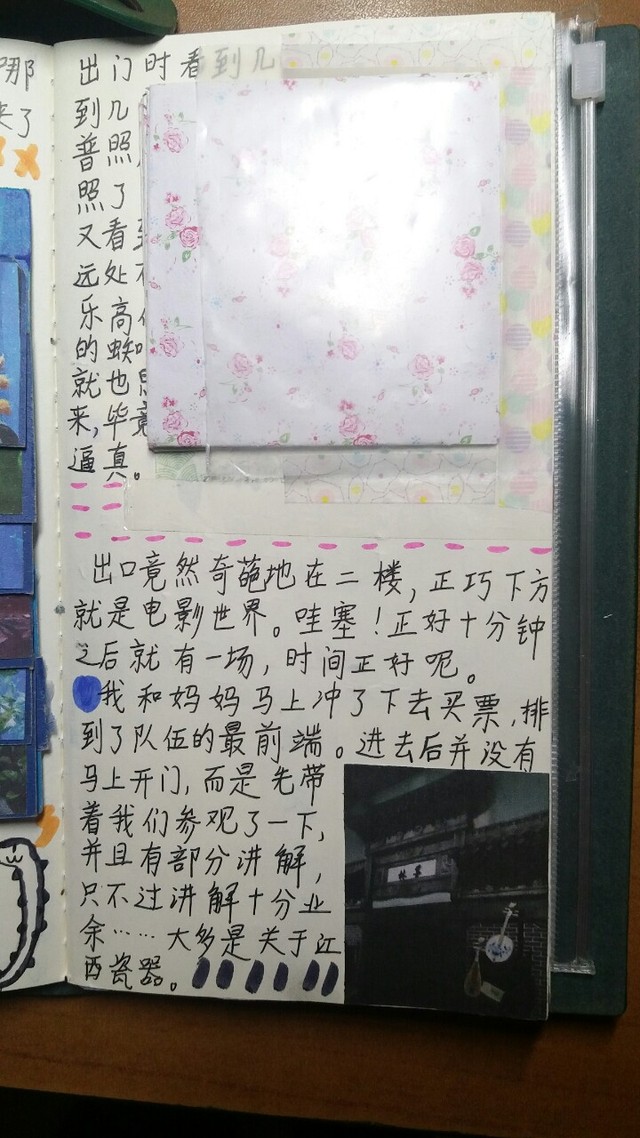 那
来了
出门时看到几
到几
普照
照了
又看
远处
乐高
的蜘
就也
来,毕竟
逼真。
出口竟然奇葩地在二楼,正巧下方
就是电影世界。哇塞!正好十分钟
之后就有一场,时间正好呢。
我和妈妈马上冲了下去买票,排
到了队伍的最前端。进去后并没有
马上开门,而是先带
着我们参观了一下,
并且有部分讲解,
只不过讲解十分业
余……大多是关于江
西瓷器。